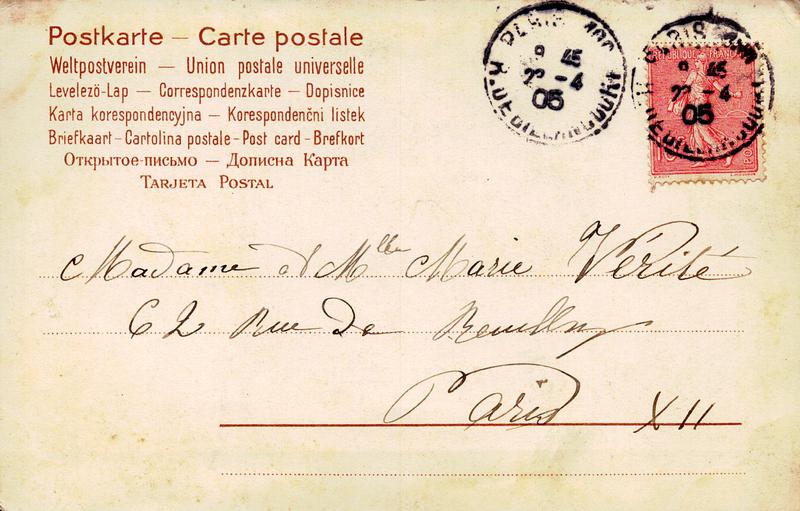 Postkarte — Carte postale
Weltpostverein — Union postale universelle
Levelezö-Lap — Correspondenzkarte — Dopisnice
Karta korespondencyjna — Korespondenčni listek
Briefkaart - Cartolina postale - Post card - Brefkort
Открытое-письмо — Дописна Карта
Tarjeta Postal
PARIS
9 45
22 -4
05
R. DEBELLEYME
RÉPUBLIQUE FRANÇAISE
Madame et Mlle Marie Vérité
62 Rue De Reuilly
Paris XII